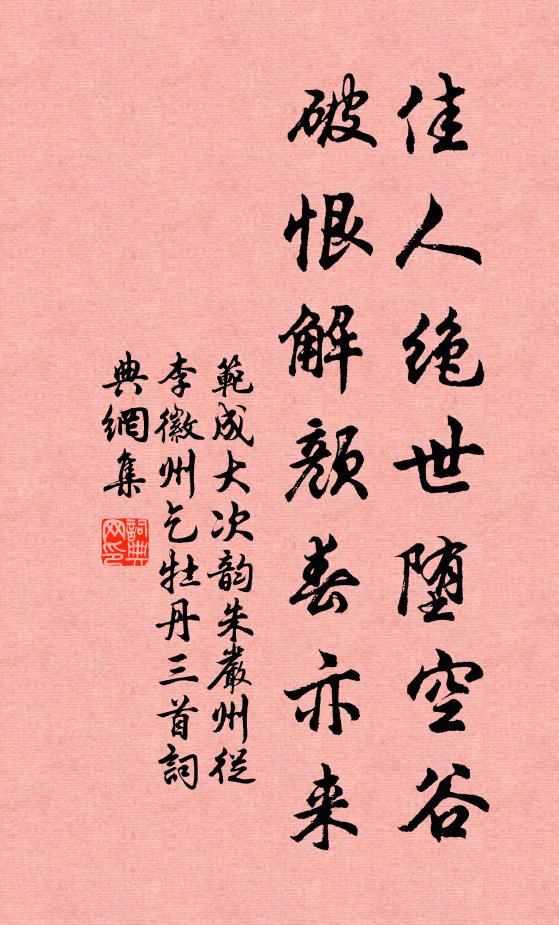 佳人绝世堕空谷
破恨解颜春亦来
範成大次韵朱嚴州従
李徽州乞牡丹三首詞
典網集
詞典网印